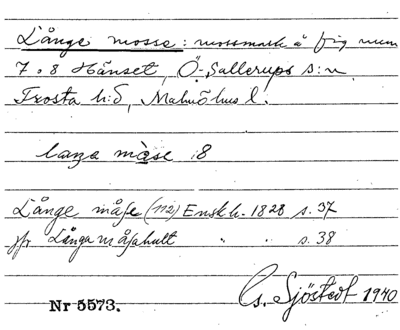 Långe mosse: mossmark å fig num
7 o 8 Hänset, Ö. Sallerups s:n,
Frosta h:d, Malmöhus l.
laŋa måse :8
Långe måse (112) Ensk h. 1828 s. 37
jfr Långa måsahult " " s. 38
Nr 5573.
Gs. Sjöstedt 1940